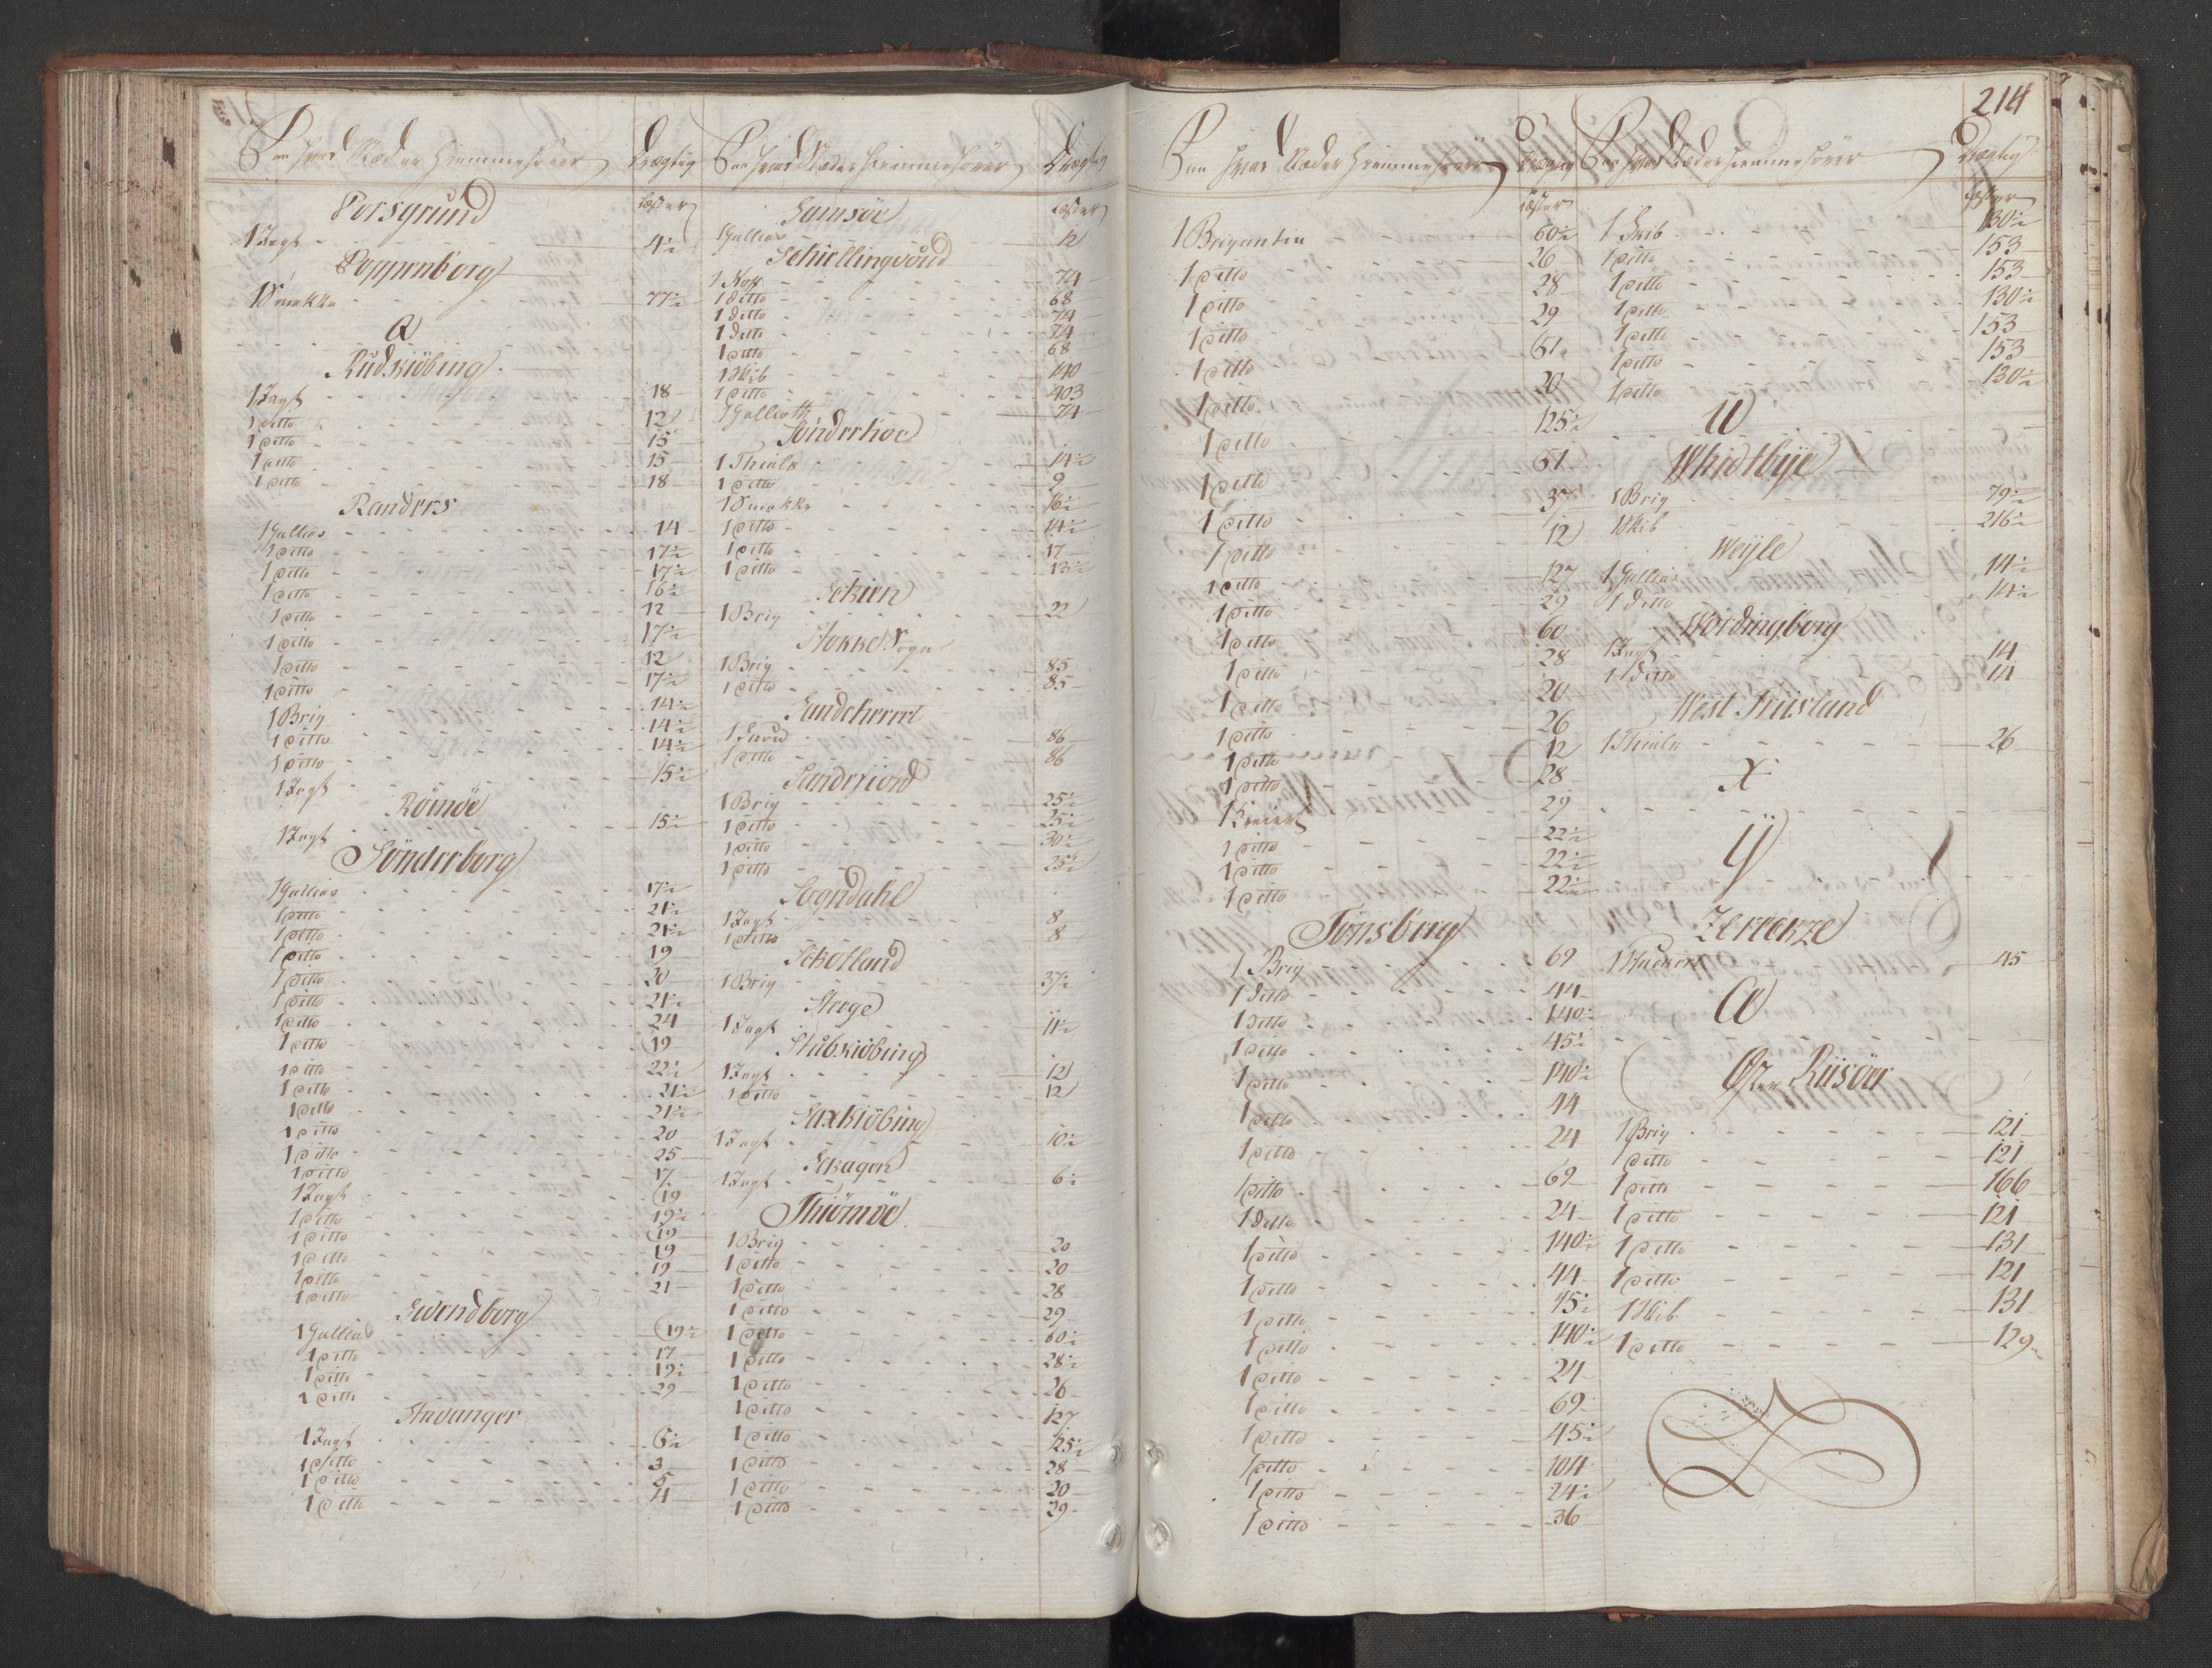 Drægtig
Læster
Porsgrund
1 Jagt 4½
Poppenborg
1 Smakke 77½
Q
Rudkiöbing
1 Jagt 18
1 ditto 12
1 ditto 15
1 ditto 15
1 ditto 18
Randers
1 Gallias 14
1 ditto 17½
1 ditto 17½
1 ditto 16½
1 ditto 12
1 ditto 17½
1 ditto 12
1 ditto 17½
1 Brig 14½
1 ditto 14½
1 ditto 14½
1 Jagt 15½
Römöe
1 Jagt 15½
Sönderborg
1 Gallias 17½
1 ditto 21½
1 ditto 21½
1 ditto 19
1 ditto 20
1 ditto 21½
1 ditto 24
1 ditto 19
1 ditto 22½
1 ditto 21½
1 ditto 21½
1 ditto 20
1 ditto 25
1 ditto 17
1 Jagt 19
1 ditto 19½
1 ditto 19
1 ditto 19
1 ditto 19
1 ditto 21
Svendborg
1 Gallias 19½
1 ditto 17
1 ditto 19½
1 ditto 29
Stavanger
1 Jagt 6½
1 ditto 3
1 ditto 5
1 ditto 4
Drægtig
Læster
Samsöe
1 Gallias 12
Schiellingvöud
1 Koff 74
1 ditto 68
1 ditto 74
1 ditto 74
1 ditto 68
1 Skib 140
1 ditto 403
1 Gallioth 74
Sönderhoe
1 Thialk 14½
1 ditto 9
1 Smakke 16½
1 ditto 14½
1 ditto 17
1 ditto 13½
Schien
1 Brig 22
Stokke Sogn
1 Brig 85
1 ditto 85
1 Snau 86
1 ditto 86
Sandefiord
1 Brig 25½
1 ditto 25½
1 ditto 30½
1 ditto 25½
Sogndahl
1 Jagt 8
1 ditto 8
Schotland
1 Brig 37½
Steege
1 Jagt 11½
Stubkiöbing
1 Jagt 12
1 ditto 12
Saxkiöbing
1 Jagt 10½
Schagen
1 Jagt 6½
Thiömöe
1 Brig 20
1 ditto 20
1 ditto 28
1 ditto 29
1 ditto 60½
1 ditto 28½
1 ditto 26
1 ditto 127
1 ditto 125½
1 ditto 28
1 ditto 20
1 ditto 29
Læster
1 Brigantin 60½
1 ditto 26
1 ditto 28
1 ditto 29
1 ditto 61
1 ditto 20
1 ditto 125½
1 ditto 61
1 ditto 37
1 ditto 12
1 ditto 127
1 ditto 29
1 ditto 60
1 ditto 28
1 ditto 20
1 ditto 26
1 ditto 12
1 ditto 28
1 Kreiert 29
1 ditto 22½
1 ditto 22½
1 ditto 22½
Tönsberg
1 Brig 69
1 ditto 44
1 ditto 140½
1 ditto 45½
1 ditto 140½
1 ditto 44
1 ditto 24
1 ditto 69
1 ditto 24
1 ditto 140½
1 ditto 44
1 ditto 45½
1 ditto 140½
1 ditto 24
1 ditto 69
1 ditto 45½
1 ditto 104
1 ditto 24½
1 ditto 36
214
Drægtig
Læster
1 Skib 130½
1 ditto 153
1 ditto 153
1 ditto 130½
1 ditto 153
1 ditto 153
1 ditto 130½
U
Whidtbye
1 Brig 79½
1 Skib 216½
Weyle
1 Gallias 14½
1 ditto 14½
Wordingborg
1 Jagt 14
1 ditto 14
West Friisland
1 Thialk 26
X
Ÿ
Zerrekze
1 Huckert 45
Øster Riisöer
1 Brig 121
1 ditto 121
1 ditto 166
1 ditto 121
1 ditto 131
1 ditto 121
1 Skib 131
1 ditto 129